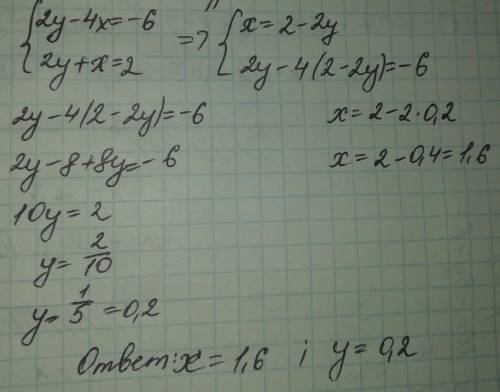 {2y-4x=-6 => {x=2-2y
{2y+x=2 {2y-4(2-2y)=-6
2y-4(2-2y)=-6
2y-8+8y=-6
10y=2
y=2/10
y=1/5=0,2
x=2-2·0,2
x=2-0,4=1,6
Ответ: x=1,6 ; y=0,2